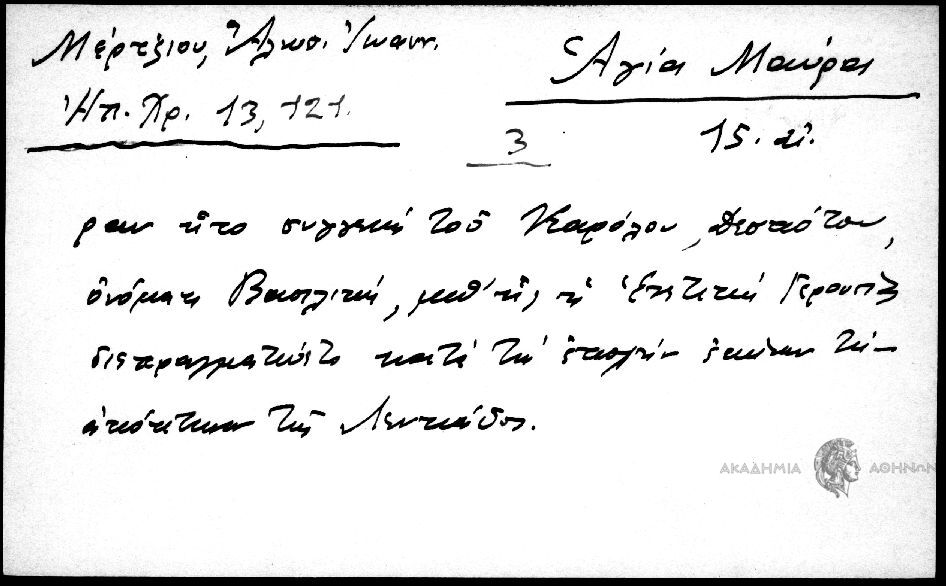 Μέρτζιου, Ἅλωσι Ἰωανν.
Ἁγία Μαύρα
Ἠπ. Χρ. 13, 121.
3
15. αἰ.
ραν ἦτο συγγενὴς τοῦ Καρόλου, Δεσπότου,
ὀνόματι Βασιλική, μεθ' ἧς ἡ Ἑνετικὴ Γερουσία
διεπραγματεύετο κατὰ τὴν ἐποχὴν ἐκείνην τὴν
ἀπόκτησιν τῆς Λευκάδος.
ΑΚΑΔΗΜΙΑ ΑΘΗΝΩΝ